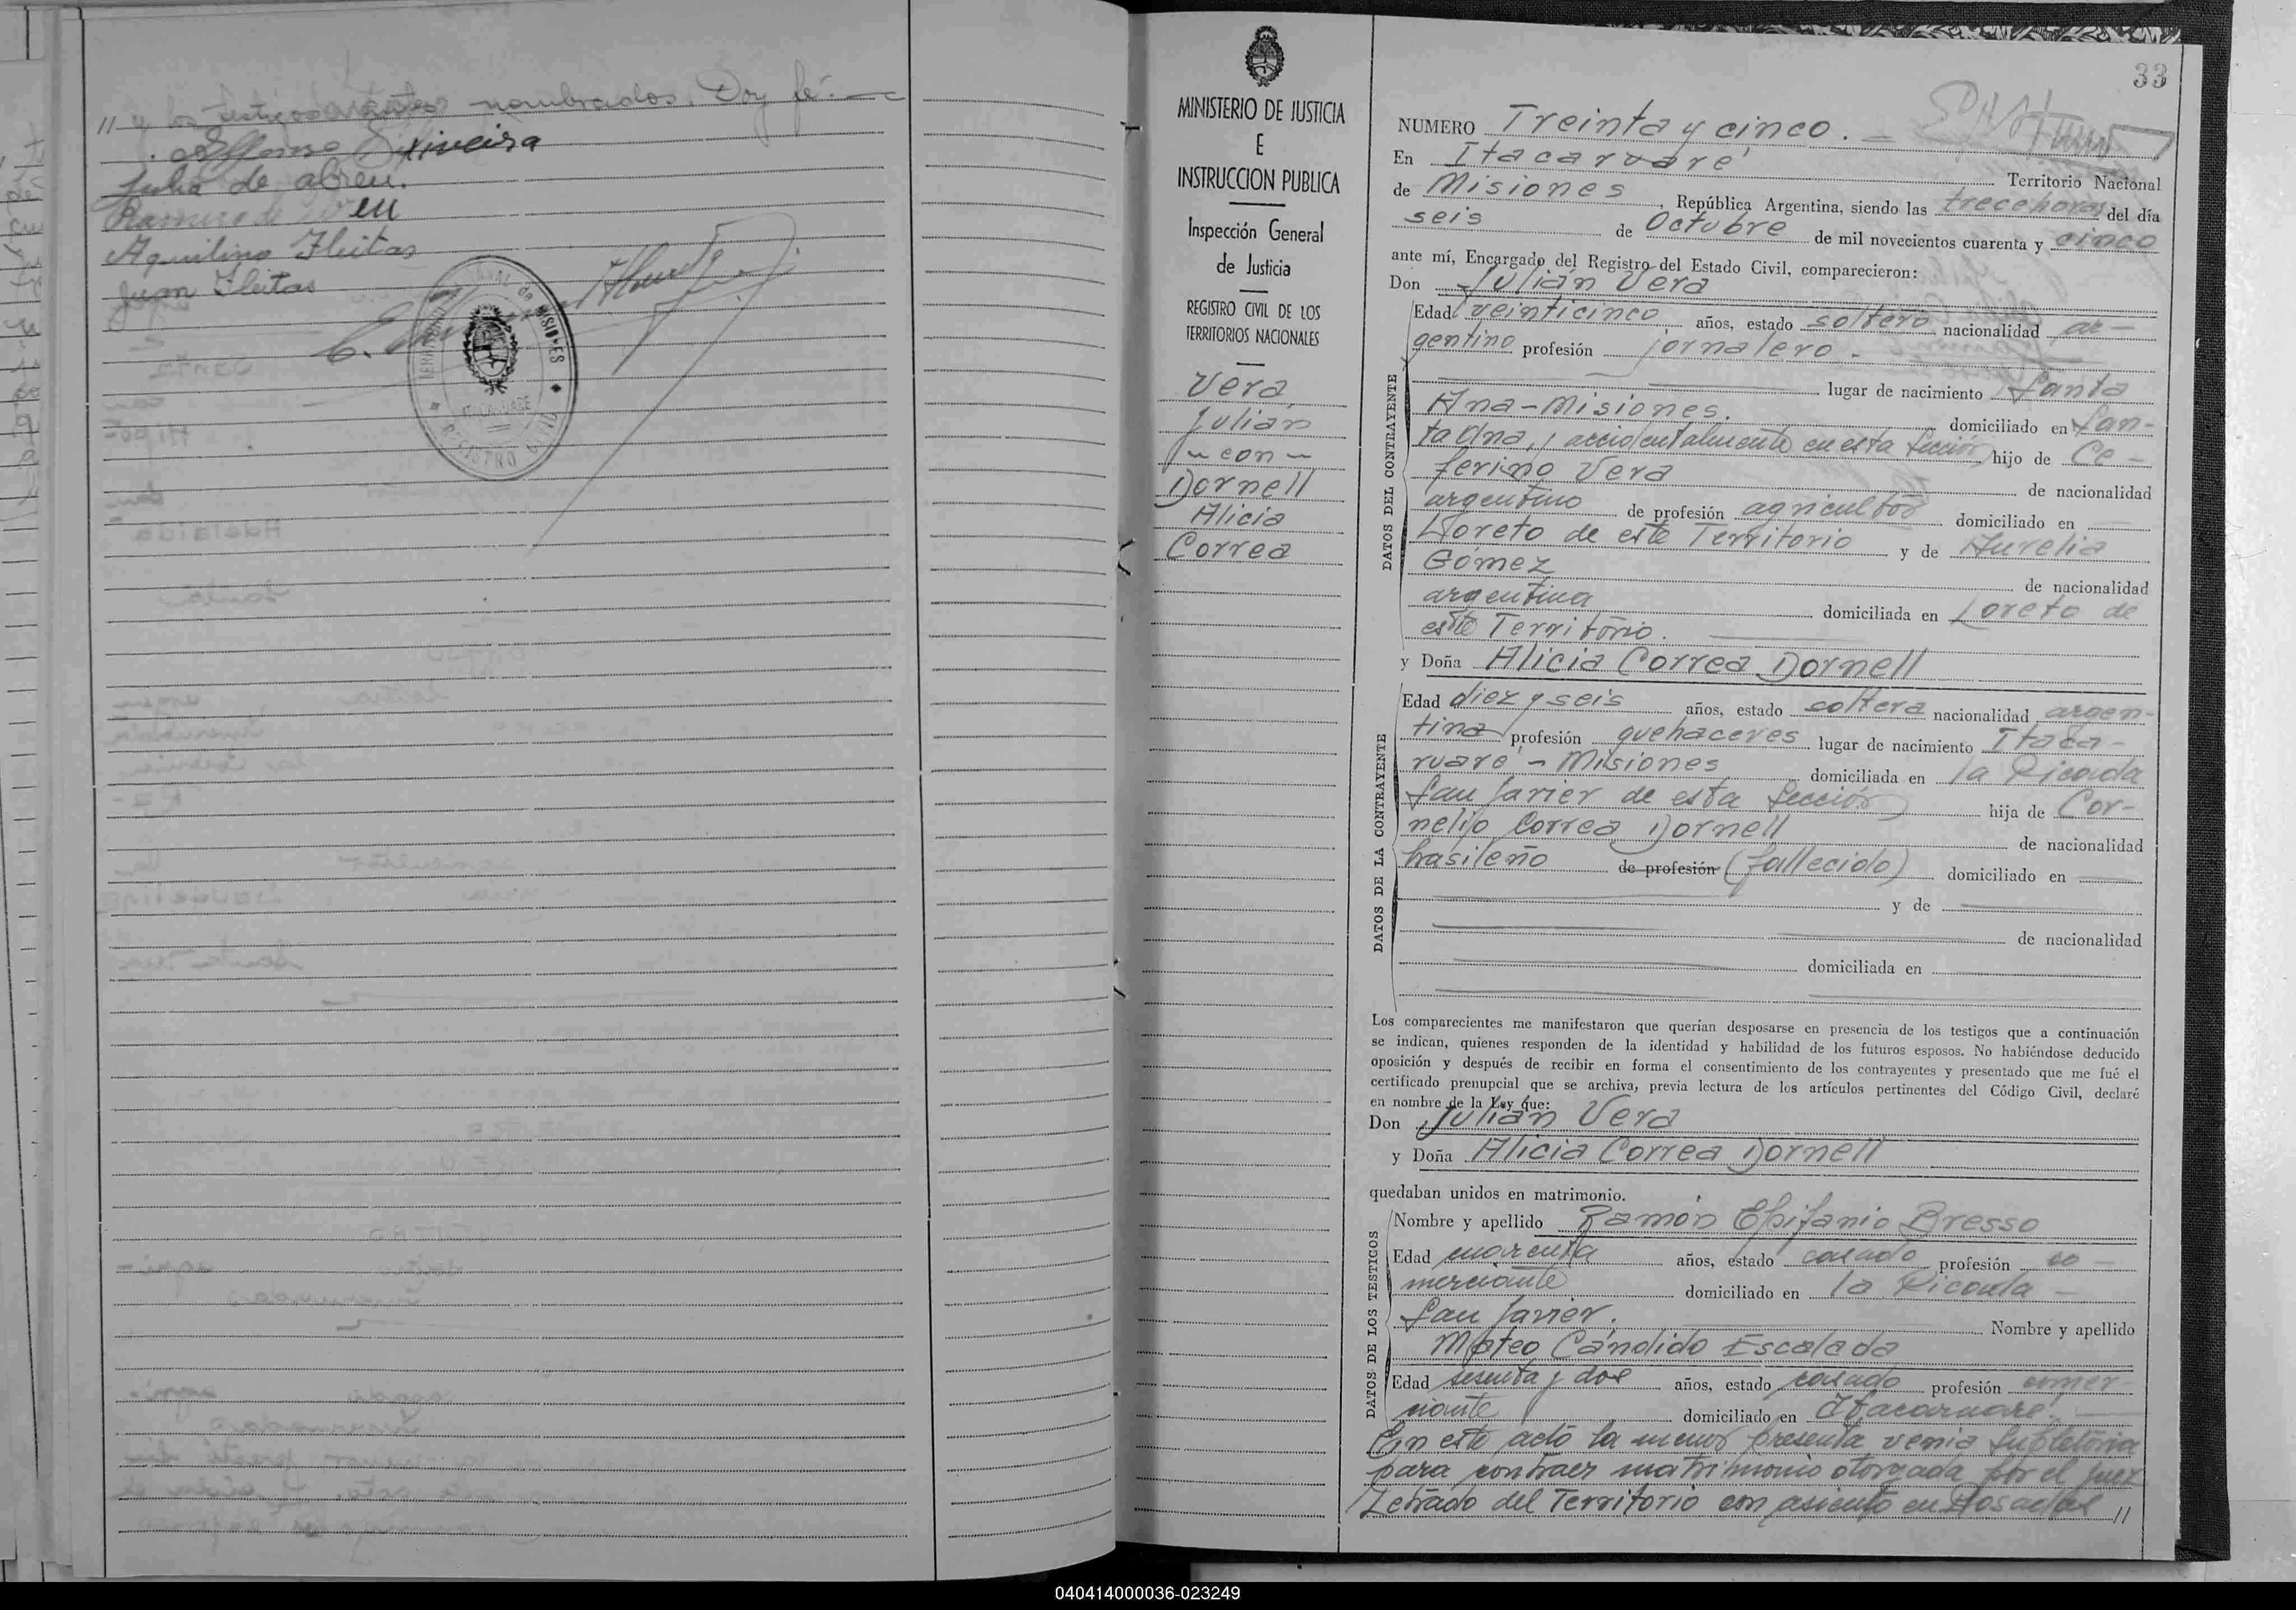 // y los testigos antes nombrados. Doy fé.
Julia de abreu.
Aquilino Fleitas
Juan Fleitas
MISIONES
REGISTRO CIVIL
MINISTERIO DE JUSTICIA
E
INSTRUCCION PUBLICA
Inspección General
de Justicia
REGISTRO CIVIL DE LOS
TERRITORIOS NACIONALES
Vera,
Julián
~ con ~
Dornell
Alicia
Correa
33
NUMERO Treinta y cinco. —
En Itacaruaré Territorio Nacional
de Misiones, República Argentina, siendo las trece horas del día
seis de Octubre de mil novecientos cuarenta y cinco
ante mí, Encargado del Registro del Estado Civil, comparecieron:
Don Julián Vera
DATOS DEL CONTRAYENTE
Edad veinticinco años, estado soltero nacionalidad ar-
gentino profesión jornalero.
lugar de nacimiento Santa
Ana - Misiones. domiciliado en San-
ta Ana, accidentalmente en esta Sección hijo de Ce-
ferino Vera de nacionalidad
argentino de profesión agricultor domiciliado en
Loreto de este Territorio y de Aurelia
Gómez de nacionalidad
argentina domiciliada en Loreto de
este Territorio.
y Doña Alicia Correa Dornell
DATOS DE LA CONTRAYENTE
Edad diez y seis años, estado soltera nacionalidad argen-
tina profesión quehaceres lugar de nacimiento Itaca-
ruaré - Misiones domiciliada en la Picada
San Javier de esta Sección hija de Cor-
nelio Correa Dornell de nacionalidad
brasileño de profesión (fallecido) domiciliado en
y de
de nacionalidad
domiciliada en
Los comparecientes me manifestaron que querían desposarse en presencia de los testigos que a continuación
se indican, quienes responden de la identidad y habilidad de los futuros esposos. No habiéndose deducido
oposición y después de recibir en forma el consentimiento de los contrayentes y presentado que me fué el
certificado prenupcial que se archiva, previa lectura de los artículos pertinentes del Código Civil, declaré
en nombre de la Ley que:
Don Julián Vera
y Doña Alicia Correa Dornell
quedaban unidos en matrimonio.
DATOS DE LOS TESTIGOS
Nombre y apellido Ramón Epifanio Bresso
Edad cuarenta años, estado casado profesión co-
merciante domiciliado en la Picada
San Javier. Nombre y apellido
Mateo Cándido Escalada
Edad sesenta y dos años, estado casado profesión comer-
ciante domiciliado en Itacaruaré.
En este acto la menor presenta venia supletoria
para contraer matrimonio otorgada por el Juez
Letrado del Territorio con asiento en Posadas //
040414000036-023249